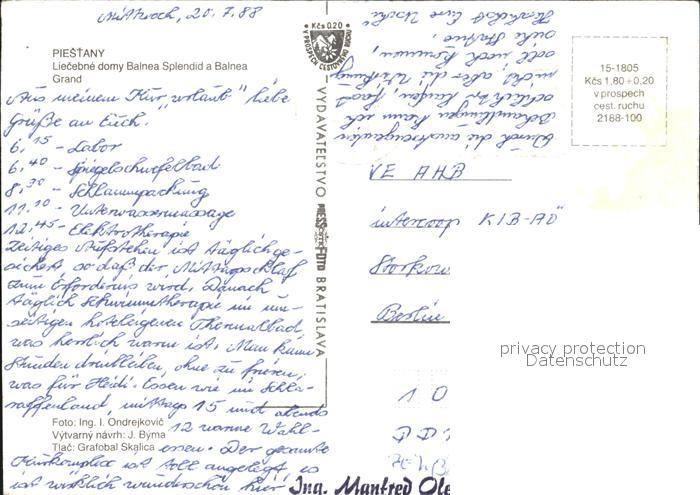 Mittwoch, 20.7.88
PIEŠŤANY
Liečebné domy Balnea Splendid a Balnea
Grand
Aus meinem Kur„urlaub" liebe
Grüße an Euch.
6,15 - Labor
6,40 - Spiegelschwefelbad
8,30 - Schlammpackung
11,10 - Unterwassermassage
12,45 - Elektrotherapie
Zeitiges Aufstehen ist täglich ge-
sichert, so daß der Mittagsschlaf
zum Erfordernis wird. Danach
täglich Schwimmtherapie im
hoteleigenen Thermalbad,
was herrlich warm ist. Man kann
Stunden drinbleiben, ohne zu frieren;
was für Heidi. Essen wie im Schla-
raffenland, mittags 15 und abends
12 warme Wahl-
essen. Der gesamte
Kurkomplex ist toll angelegt, es
ist wirklich wunderschön hier
Foto: Ing. I. Ondrejkovič
Výtvarný návrh: J. Býma
Tlač: Grafobal Skalica
Kčs 0.20
V PROSPECH CESTOVNÉHO RUCHU
VYDAVATEĽSTVO PRESSFOTO BRATISLAVA
Durch die anstrengenden
Behandlungen kann ich
15-1805
Kčs 1,80 + 0,20
v prospech
cest. ruchu
2188-100
VE AHB
intercoop KIB-AÖ
Storkow
Berlin
1 0
DD
privacy protection
Datenschutz
Ing. Manfred Ole